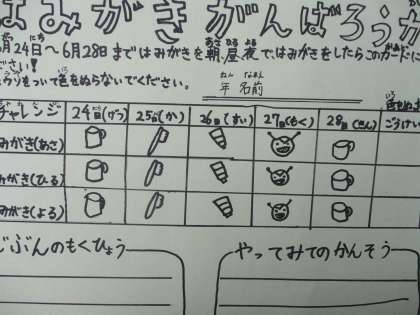 はみがきがんばろうカ
6月24日～6月28日まではみがきを朝、昼、夜で、はみがきをしたらこのカードに
ださい!
をつって色をぬらないでください。
年 名前
チャレンジ 24日(げつ) 25日(か) 26日(すい) 27日(もく) 28日(きん) ごうけい
みがき(あさ)
みがき(ひる)
みがき(よる)
じぶんのもくひょう やってみてのかんそう